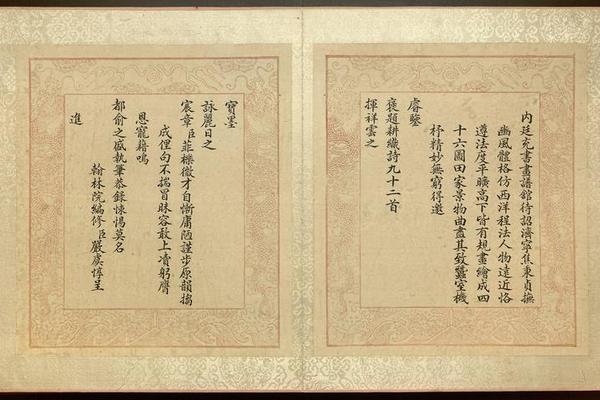 内廷充書畫譜館待詔濟寧焦秉貞撫
豳風體格仿西洋程法人物遠近恪
遵法度平曠高下皆有規畫繪成四
十六圖田家景物曲盡其致蠶室機
杼精妙無窮得邀
睿鑒
褒題耕織詩九十二首
揮祥雲之
寶墨
詠麗日之
宸章臣菲樕微才自慚庸陋謹步原韻搗
成俚句不揣冒昧容敢上凟躬膺
恩寵藉鳴
都俞之盛執筆恭錄悚惕莫名
翰林院編修臣嚴虞惇呈
進